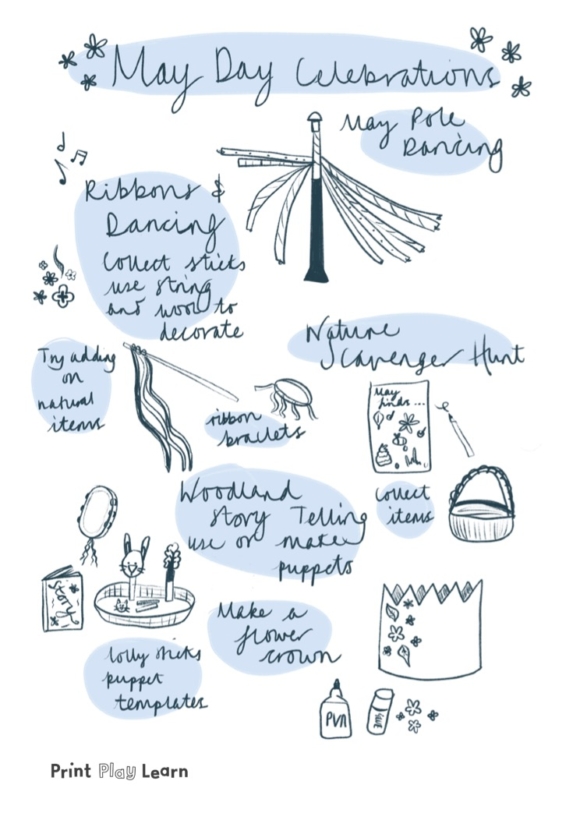 May Day Celebrations
May Pole
Dancing
Ribbons &
Dancing
Collect sticks
use string
and wool to
decorate
Try adding
on
natural
items
ribbon
braclets
Nature
Scavenger Hunt
May
finds...
Collect
items
Woodland
Story Telling
use or make
puppets
Story
Make a
flower
crown
lolly sticks
puppet
templates
PVA
GLUE
Print Play Learn